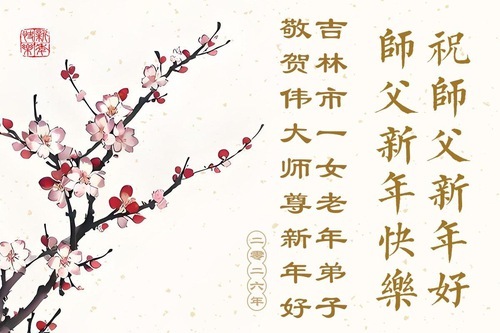 祝師父新年好
師父新年快樂
吉林市一女老年弟子
敬贺伟大师尊新年好
二零二六年
新年快樂